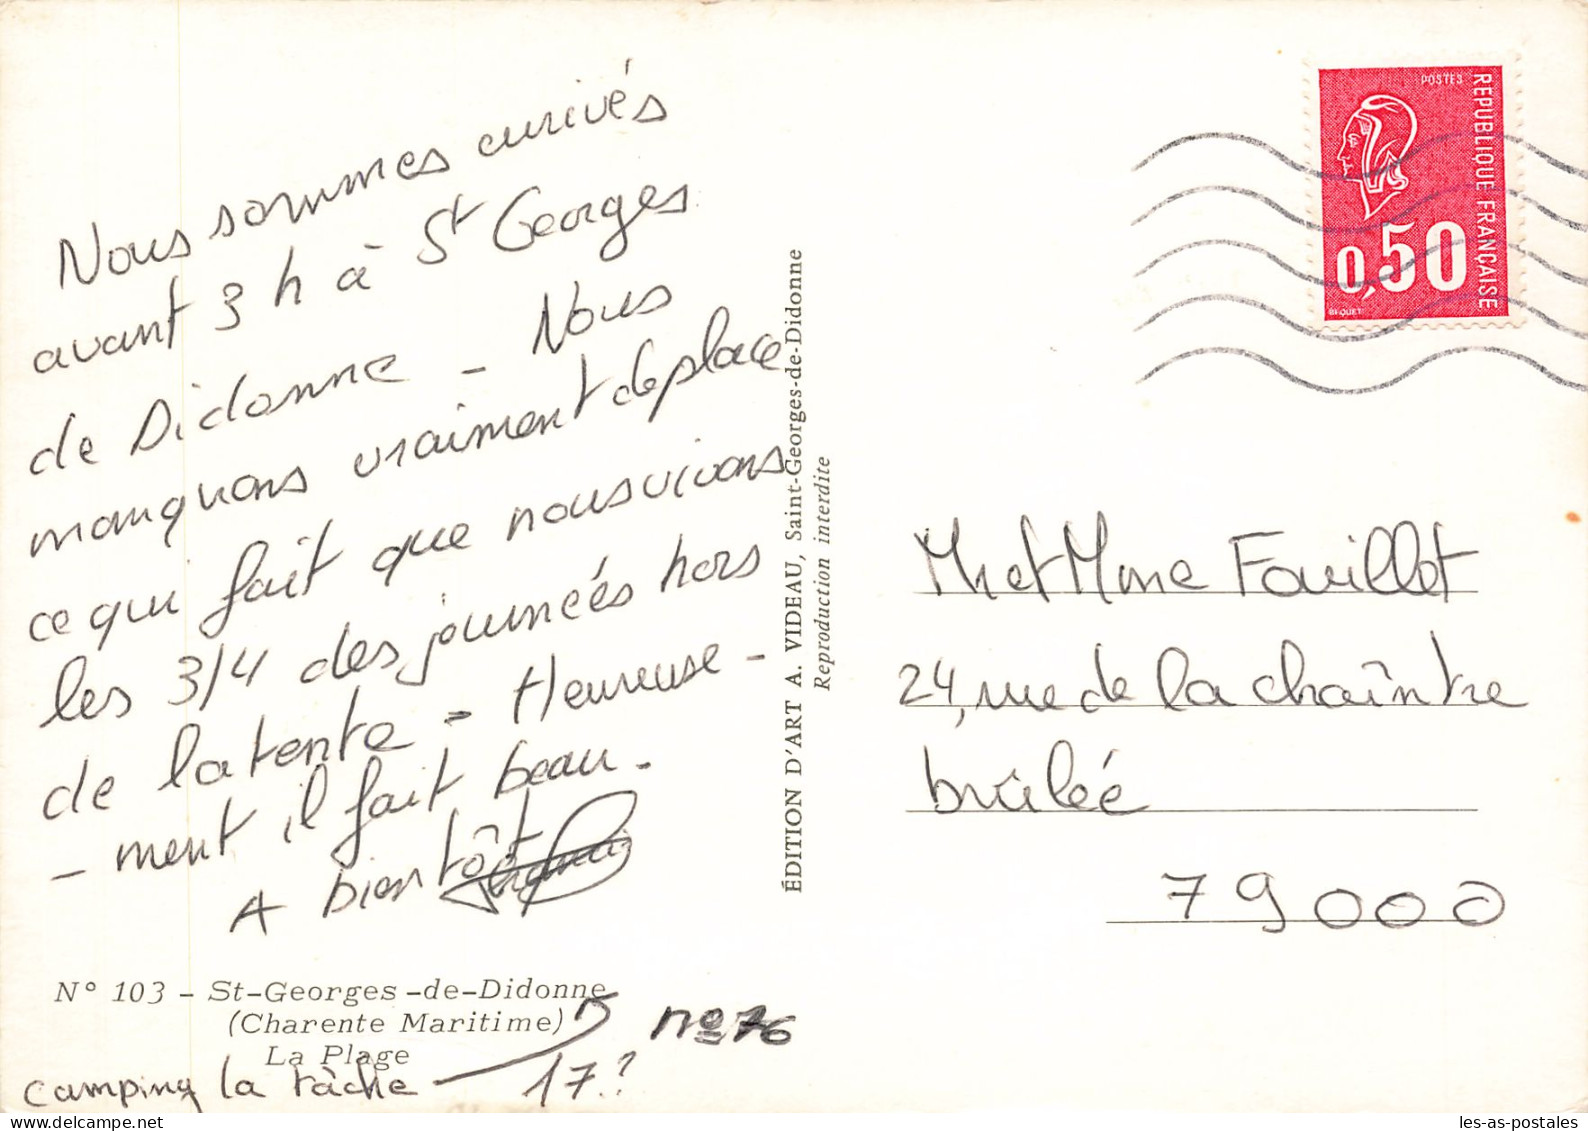 Nous sommes arrivés
avant 3 h à St Georges
de Didonne - Nous
manquons vraiment de place
ce qui fait que nous vivons
les 3/4 des journées hors
de la tente - Heureuse-
-ment il fait beau.
A bientôt
N° 103 - St-Georges-de-Didonne
(Charente Maritime)
La Plage
camping la tâche
17?
n° 76
ÉDITION D'ART A. VIDEAU, Saint-Georges-de-Didonne
Reproduction interdite
POSTES
REPUBLIQUE FRANÇAISE
0,50
BEQUET
Mr et Mme Fouillet
24, rue de la chaîntre
brûlée
79000
les-as-postales